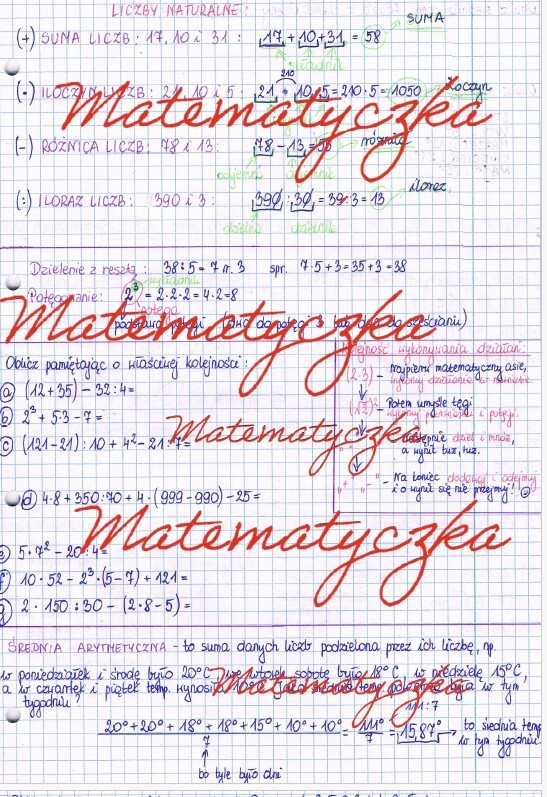 LICZBY NATURALNE:
(+) SUMA LICZB: 17, 10 i 31 : 17 + 10 + 31 = 58 SUMA
składnik
210
(•) ILOCZYN LICZB: 21, 10 i 5 : 21 • 10 • 5 = 210 • 5 = 1050 iloczyn
(-) RÓŻNICA LICZB: 78 i 13 : 78 - 13 = różnica
odjemna odjemnik
(:) ILORAZ LICZB: 390 i 3 : 390 : 30 = 39 : 3 = 13 iloraz
dzielna dzielnik
Dzielenie z resztą : 38 : 5 = 7 r. 3 spr. 7·5+3=35+3=38
wykładnik
Potęgowanie: 2³ = 2·2·2 = 4·2 = 8
potęga
podstawa potęgi (dwa do potęgi 3 lub dwa do sześcianu)
Oblicz pamiętając o właściwej kolejności :
a) (12+35) - 32:4=
b) 2³ + 5·3 - 7 =
c) (121-21) : 10 + 4² - 21 : 7 =
d) 4·8 + 350:70 + 4·(999-990) - 25=
e) 5·7² - 20:4=
f) 10·52 - 2³·(5-7) + 121=
g) 2·150:30 - (2·8-5)=
Kolejność wykonywania działań:
(2·3) - Najpierw matematyczny asie,
wykonaj działanie w nawiasie.
Potem umyśle tęgi
wykonaj pierwiastki i potęgi.
następnie dziel i mnóż,
a wynik tuż, tuż.
"+" "-" - Na koniec dodawaj i odejmuj
i o wynik się nie przejmuj! ☺
ŚREDNIA ARYTMETYCZNA - to suma danych liczb podzielona przez ich liczbę, np.
w poniedziałek i środę było 20°C, we wtorek i sobotę było 18°C, w niedzielę 15°C,
a w czwartek i piątek temp. wynosiła 10°C. Jaka średnia temp. powietrza była w tym
tygodniu?
111:7
20°+20°+18°+18°+15°+10°+10° / 7 = 111° / 7 = 15,87° → to średnia temp
w tym tygodniu.
bo tyle było dni
Matematyczka
Matematyczka
Matematyczka
Matematyczka
Matematyczka